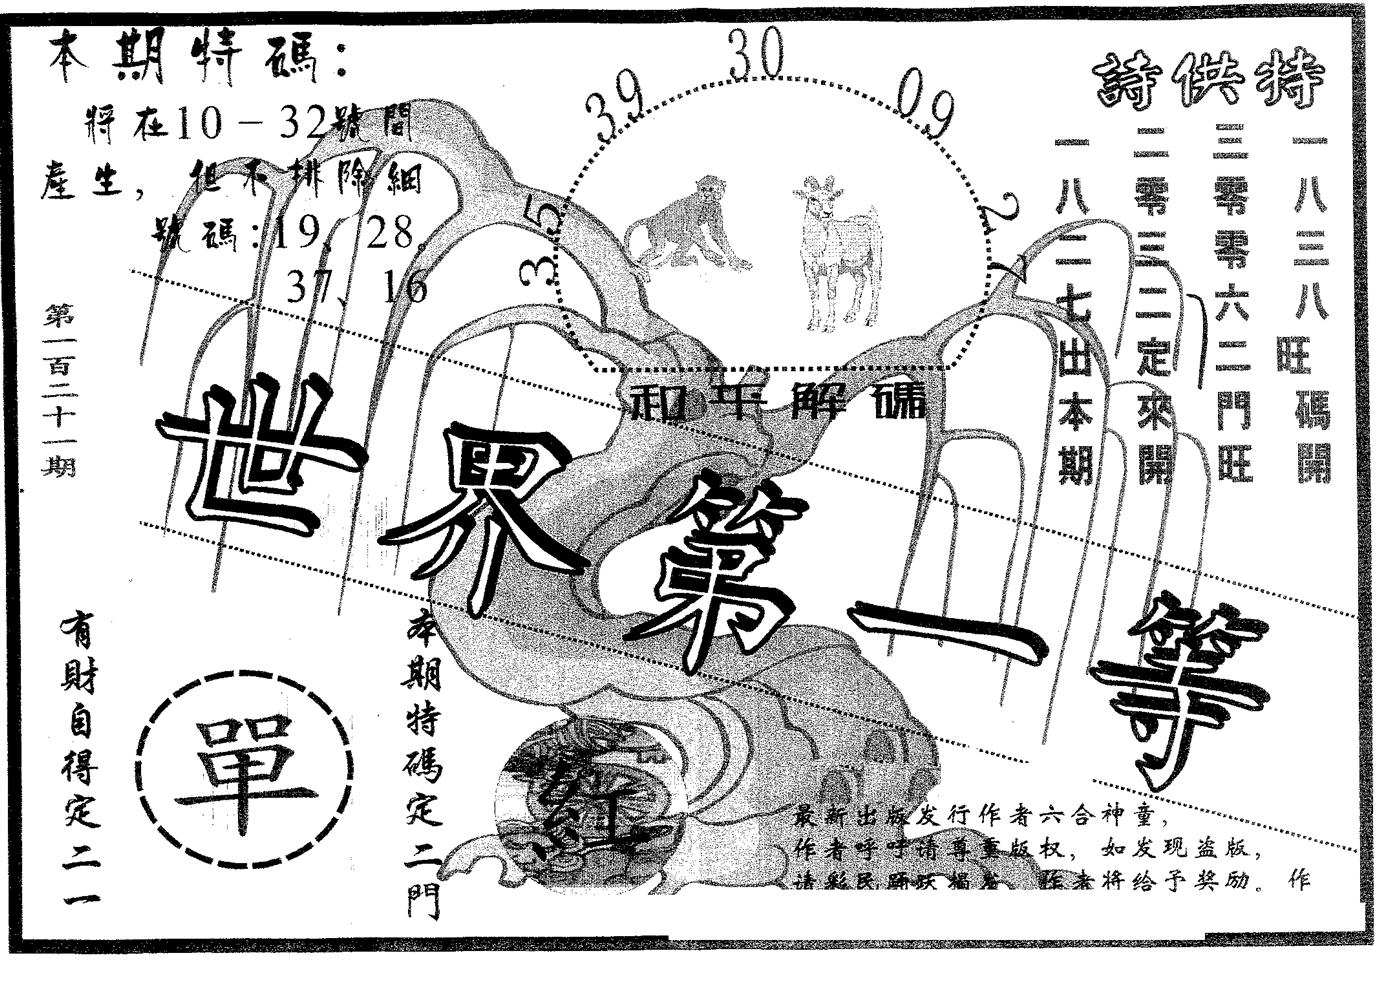 本期特碼：
將在10－32號間
產生，但不排除細
號碼：19、28。
37、16
第一百二十一期
39
30
09
35
27
和平解碼
特供詩
一八三八旺碼開
三零零六二門旺
二零三二定來開
一八二七出本期
世界第一等
有財自得定二一
單
本期特碼定二門
紅
最新出版发行作者六合神童，
作者呼吁请尊重版权，如发现盗版，
请彩民踊跃揭发 作者将给予奖励。作